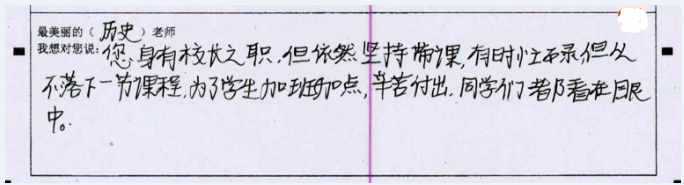 最美丽的(历史)老师
我想对您说:您身有校长之职,但依然坚持带课,有时忙碌但从
不落下一节课程,为了学生加班加点,辛苦付出,同学们都看在眼
中。